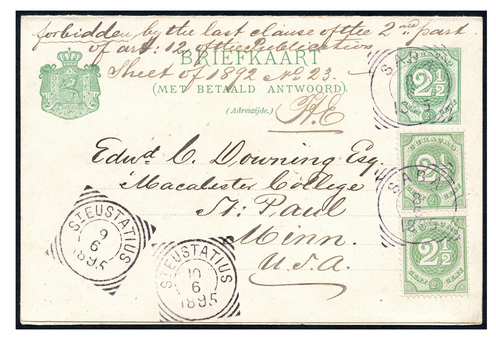 forbidden by the last clause of the 2nd part
of art: 12 of the Publication
BRIEFKAART
Sheet of 1892 No. 23.
(MET BETAALD ANTWOORD).
(Adreszijde.)
SABA
2½
CURAÇAO
2½
SABA
2½
Edwd. C. Downing Esq.
Macalester College
St. Paul
Minn.
U.S.A.
ST EUSTATIUS
9
6
1895
ST EUSTATIUS
10
6
1895